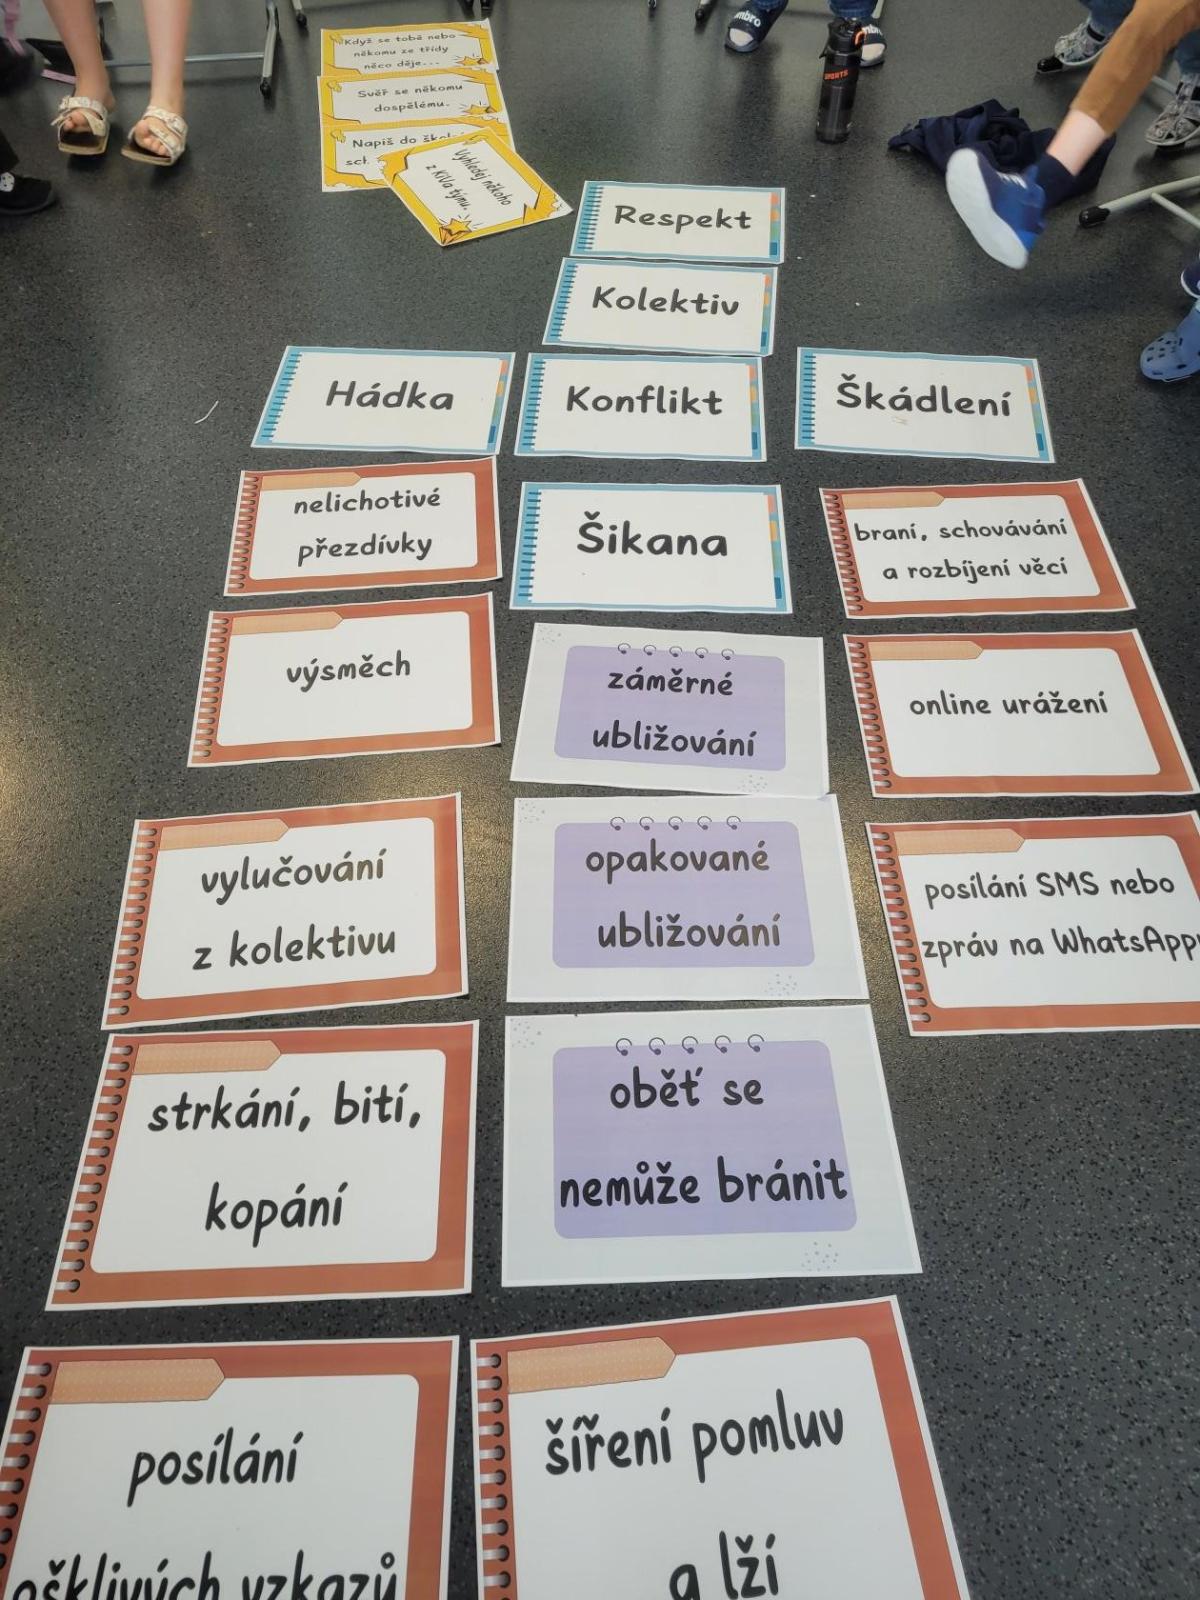 Když se tobě nebo
někomu ze třídy
něco děje...
Svěř se někomu
dospělému.
Napiš do
Vyhledej někoho
z KiVa týmu.
SPORTS
Respekt
Kolektiv
Hádka
Konflikt
Škádlení
nelichotivé
přezdívky
Šikana
braní, schovávání
a rozbíjení věcí
výsměch
záměrné
ubližování
online urážení
vylučování
z kolektivu
opakované
ubližování
posílání SMS nebo
zpráv na WhatsAppu
strkání, bití,
kopání
oběť se
nemůže bránit
posílání
ošklivých vzkazů
šíření pomluv
a lží